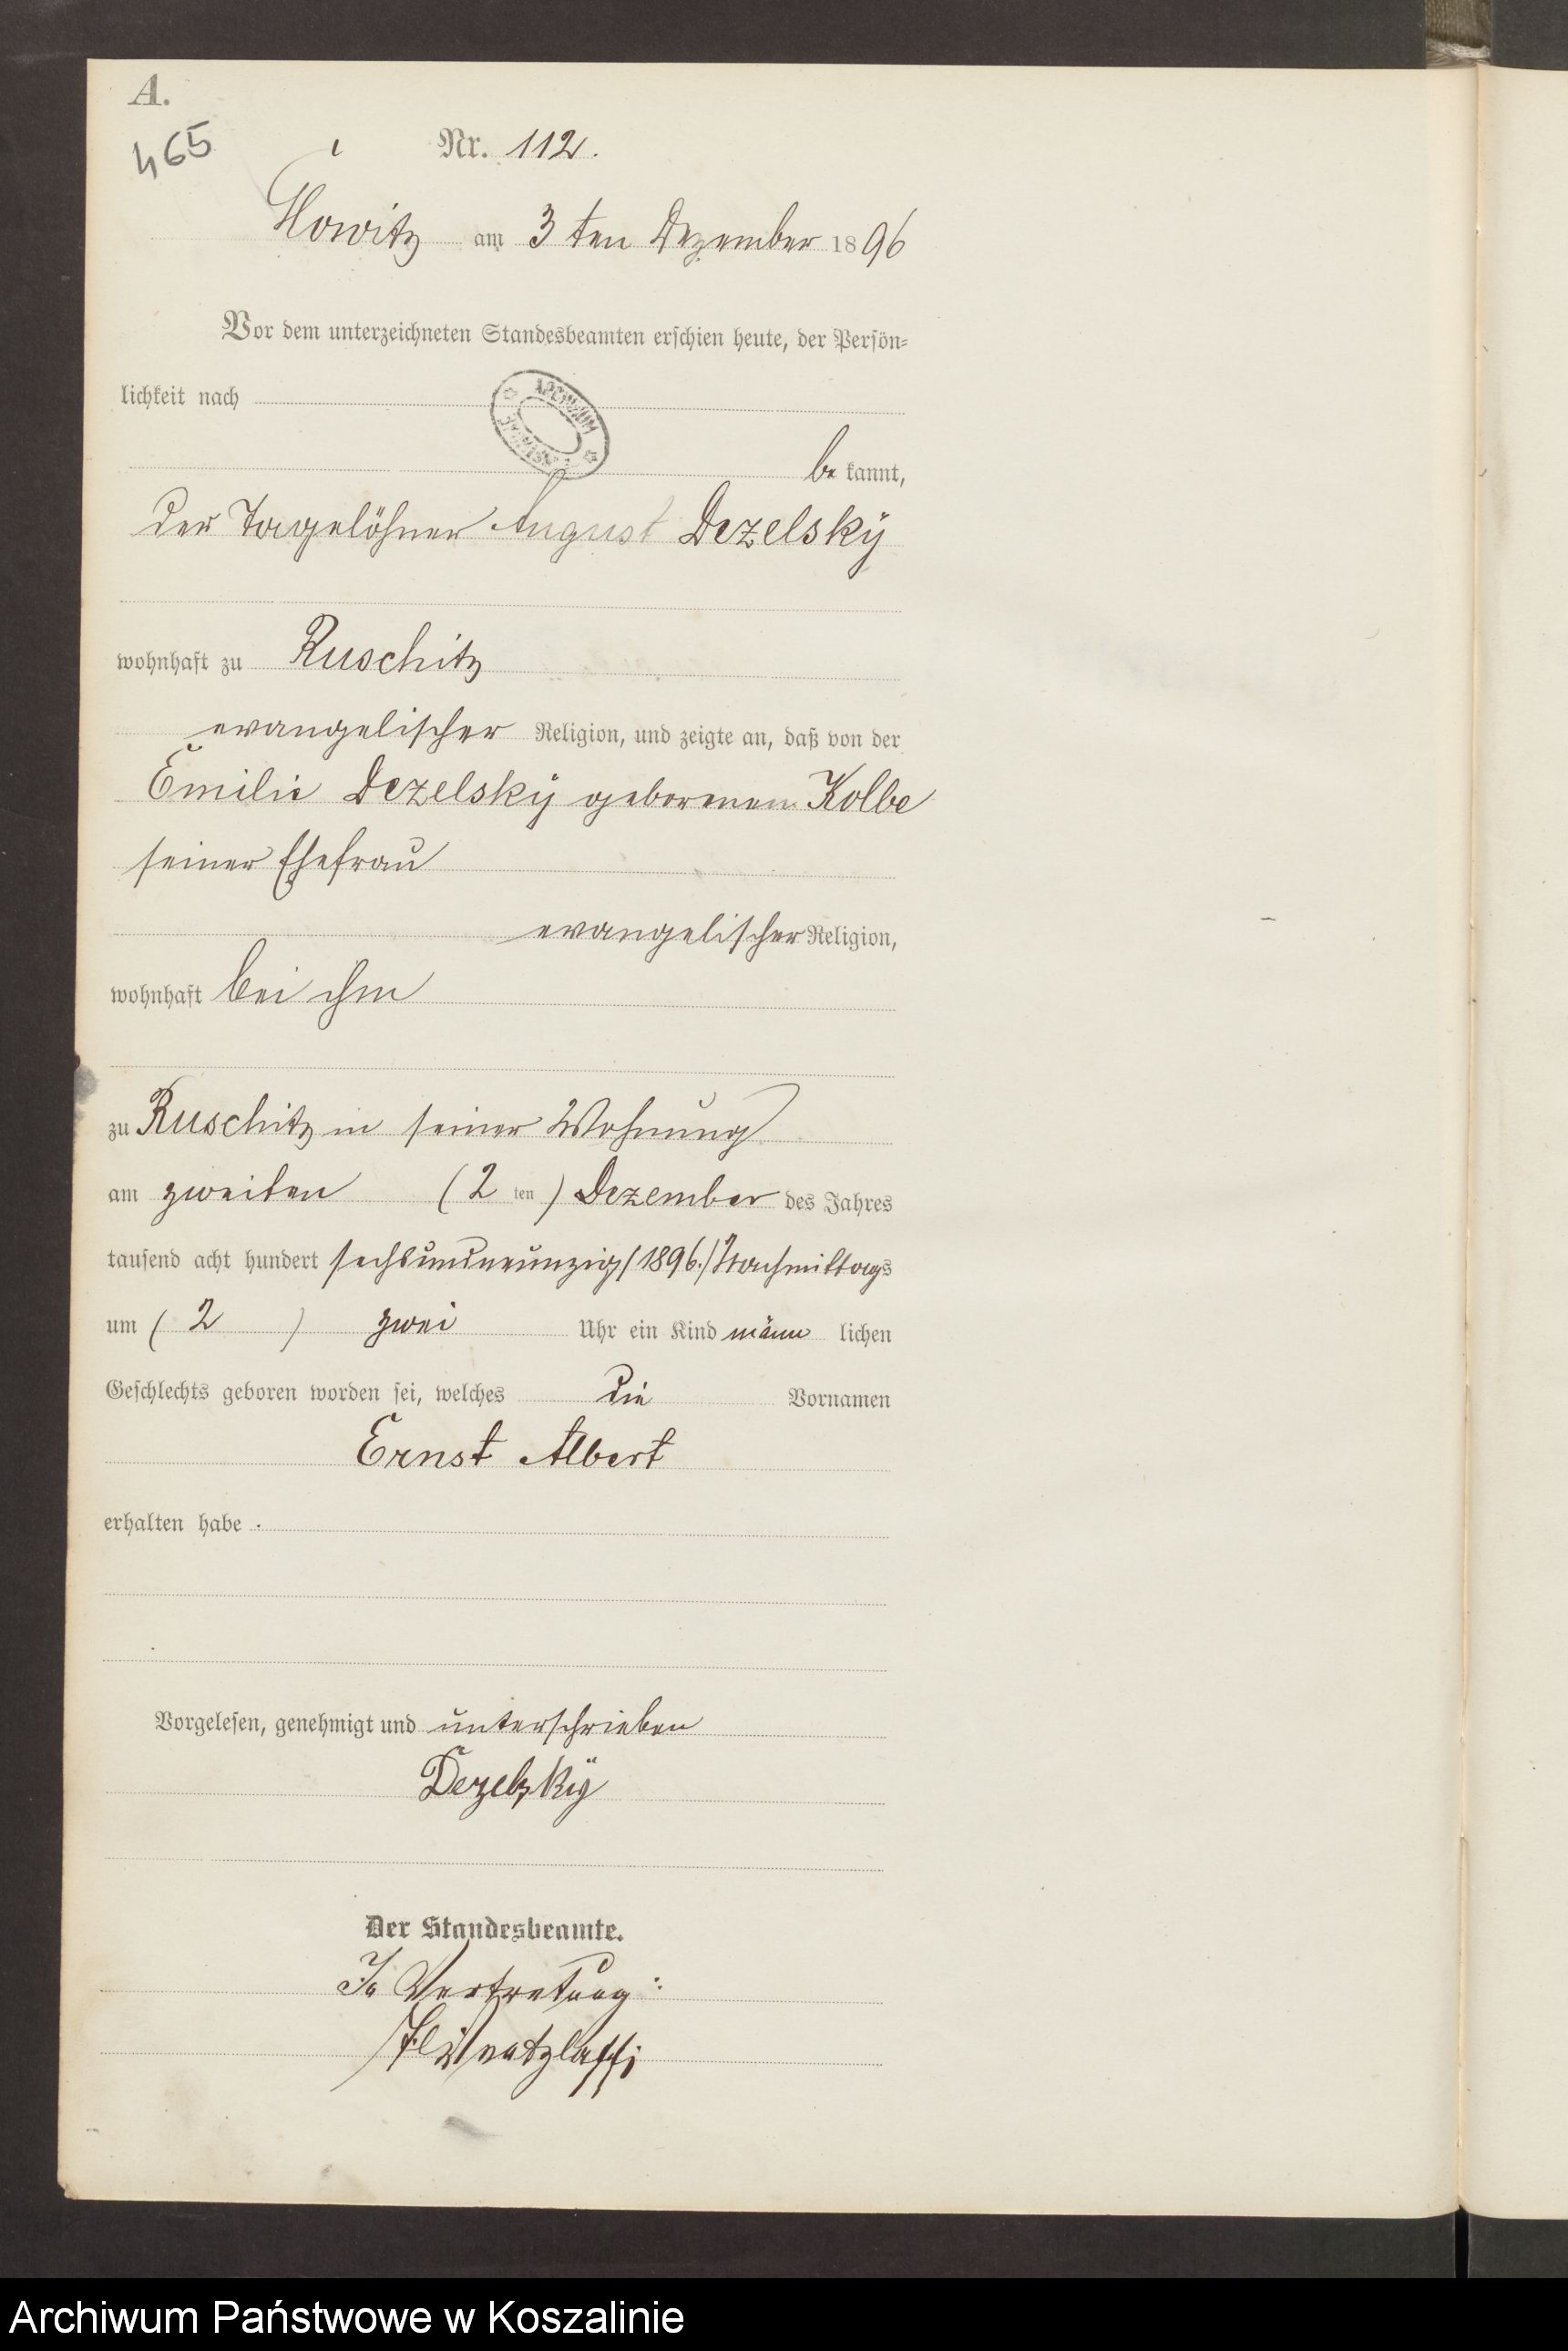 A.
465
Nr. 112.
Glowitz am 3 ten Dezember 1896
Vor dem unterzeichneten Standesbeamten erschien heute, der Persön-
lichkeit nach
ARCHIWUM
be kannt,
der Tagelöhner August Dezelsky
wohnhaft zu Ruschitz
evangelischer Religion, und zeigte an, daß von der
Emilie Dezelsky geborenen Kolbe
seiner Ehefrau
evangelischer Religion,
wohnhaft bei ihm
zu Ruschitz in seiner Wohnung
am zweiten (2 ten) Dezember des Jahres
tausend acht hundert sechsundneunzig /1896./ Nachmittags
um ( 2 ) zwei Uhr ein Kind männ lichen
Geschlechts geboren worden sei, welches die Vornamen
Ernst Albert
erhalten habe.
Vorgelesen, genehmigt und unterschrieben
Dezelsky
Der Standesbeamte.
In Vertretung:
Archiwum Państwowe w Koszalinie